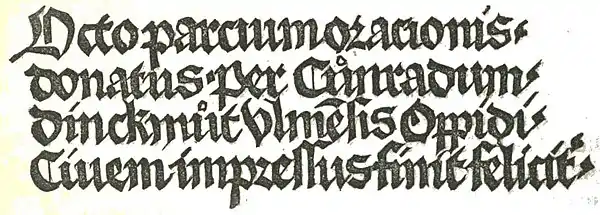 Octo parcium oꝛacionis·
donatus· Per Cůnradum·
dinckmůt Vlmēsis Oppidi·
Ciuem impꝛessus finit felicit̕·